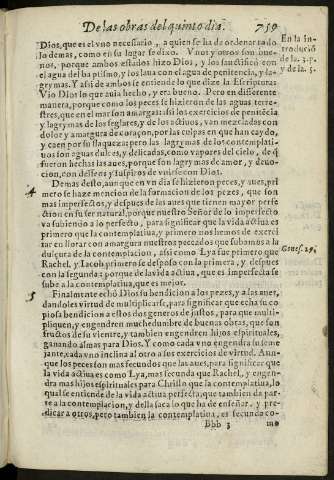 De las obras del quinto dia. 759
Dios, que es el vno necessario, a quien se ha de ordenar todo
lo demas, como en su lugar se dixo. Vnos y otros son bue-
nos, porque ambos estados hizo Dios, y los santificó con
el agua del baptismo, y los laua con el agua de penitencia, y la-
grymas. Y assi de ambos se entiende lo que dize la Escriptura:
Vio Dios lo que auia hecho, y era bueno. Pero en differente
manera, porque como los peces se hizieron de las aguas terre-
stres, que en el mar son amargas: assi los exercicios de penitēcia
y lagrymas de los seglares, y de los actiuos, van mezclados con
dolor y amargura de coraçon, por las culpas en que han caydo,
y caen por su flaqueza: pero las lagrymas de los contemplati-
uos son aguas dulces, y delicadas, como vapores del cielo, de q̄
fueron hechas las aues, porque son lagrymas de amor, y deuo-
cion, con desseos y suspiros de vnirse con Dios.
En la in-
troduciō
de la. 3. p.
y de la. 5.
4
Demas desto, aunque en vn dia se hizieron peces, y aues, pri
mero se haze mencion de la formacion de los pezes, que son
mas imperfectos, y despues de las aues que tienen mayor perfe
ction en su ser natural, porque nuestro Señor de lo imperfecto
va subiendo a lo perfecto, para significar que la vida actiua es
primero que la contemplatiua, y primero nos hemos de exerci
tar en llorar con amargura nuestros peccados que subamos a la
dulçura de la contemplacion, assi como Lya fue primero que
Rachel, y Iacob primero se desposo con la primera, y despues
con la segunda: porque de la vida actiua, que es imperfecta se
sube a la contemplatiua, que es mejor.
Genes. 29.
5
Finalmente echó Dios su bendicion a los pezes, y a las aues,
dandoles virtud de multiplicarse, para significar que echa su co
piosa bendicion a estos dos generos de justos, para que multi-
pliquen, y engendren muchedumbre de buenas obras, que son
fructos de su vientre, y tambien engendren hijos espirituales,
ganando almas para Dios. Y como cada vno engendra su seme
jante, cada vno inclina al otro a sus exercicios de virtud. Aun-
que los peces son mas fecundos que las aues, para significar que
la vida actiua es como Lya, mas fecunda que Rachel, y engen-
dra mas hijos espirituales para Christo que la contemplatiua, lo
qual se entiende de la vida actiua perfecta, que tambien da par-
te a la contemplacion, y della saca lo que ha de enseñar, y pre-
dicar a otros, pero tambien la contemplatiua, es fecunda co-
Bbb 3 mo